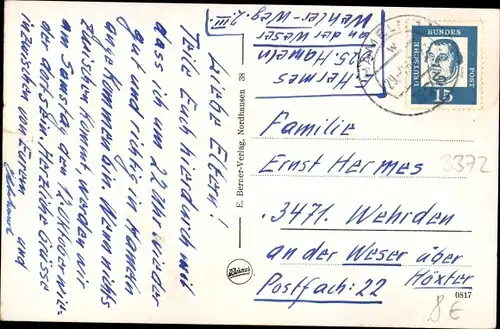 Hermes
325. Hameln
an der Weser
Wehler-Weg. 2.III.
Liebe Eltern!
Teile Euch hierdurch mit
dass ich um 22 Uhr wieder
gut und richtig in Hameln
angekommen bin. Wenn nichts
zwischen kommt, werden wir
am Samstag den 12 Oktober wie-
der dort sein. Herzliche Grüsse
inzwischen von Eurem
und
E. Berner-Verlag, Nordhausen 38
HAMELN
DEUTSCHE BUNDESPOST
15
Familie
Ernst Hermes
3471. Wehrden
an der Weser über
Höxter
Postfach: 22
3372
0817
8€